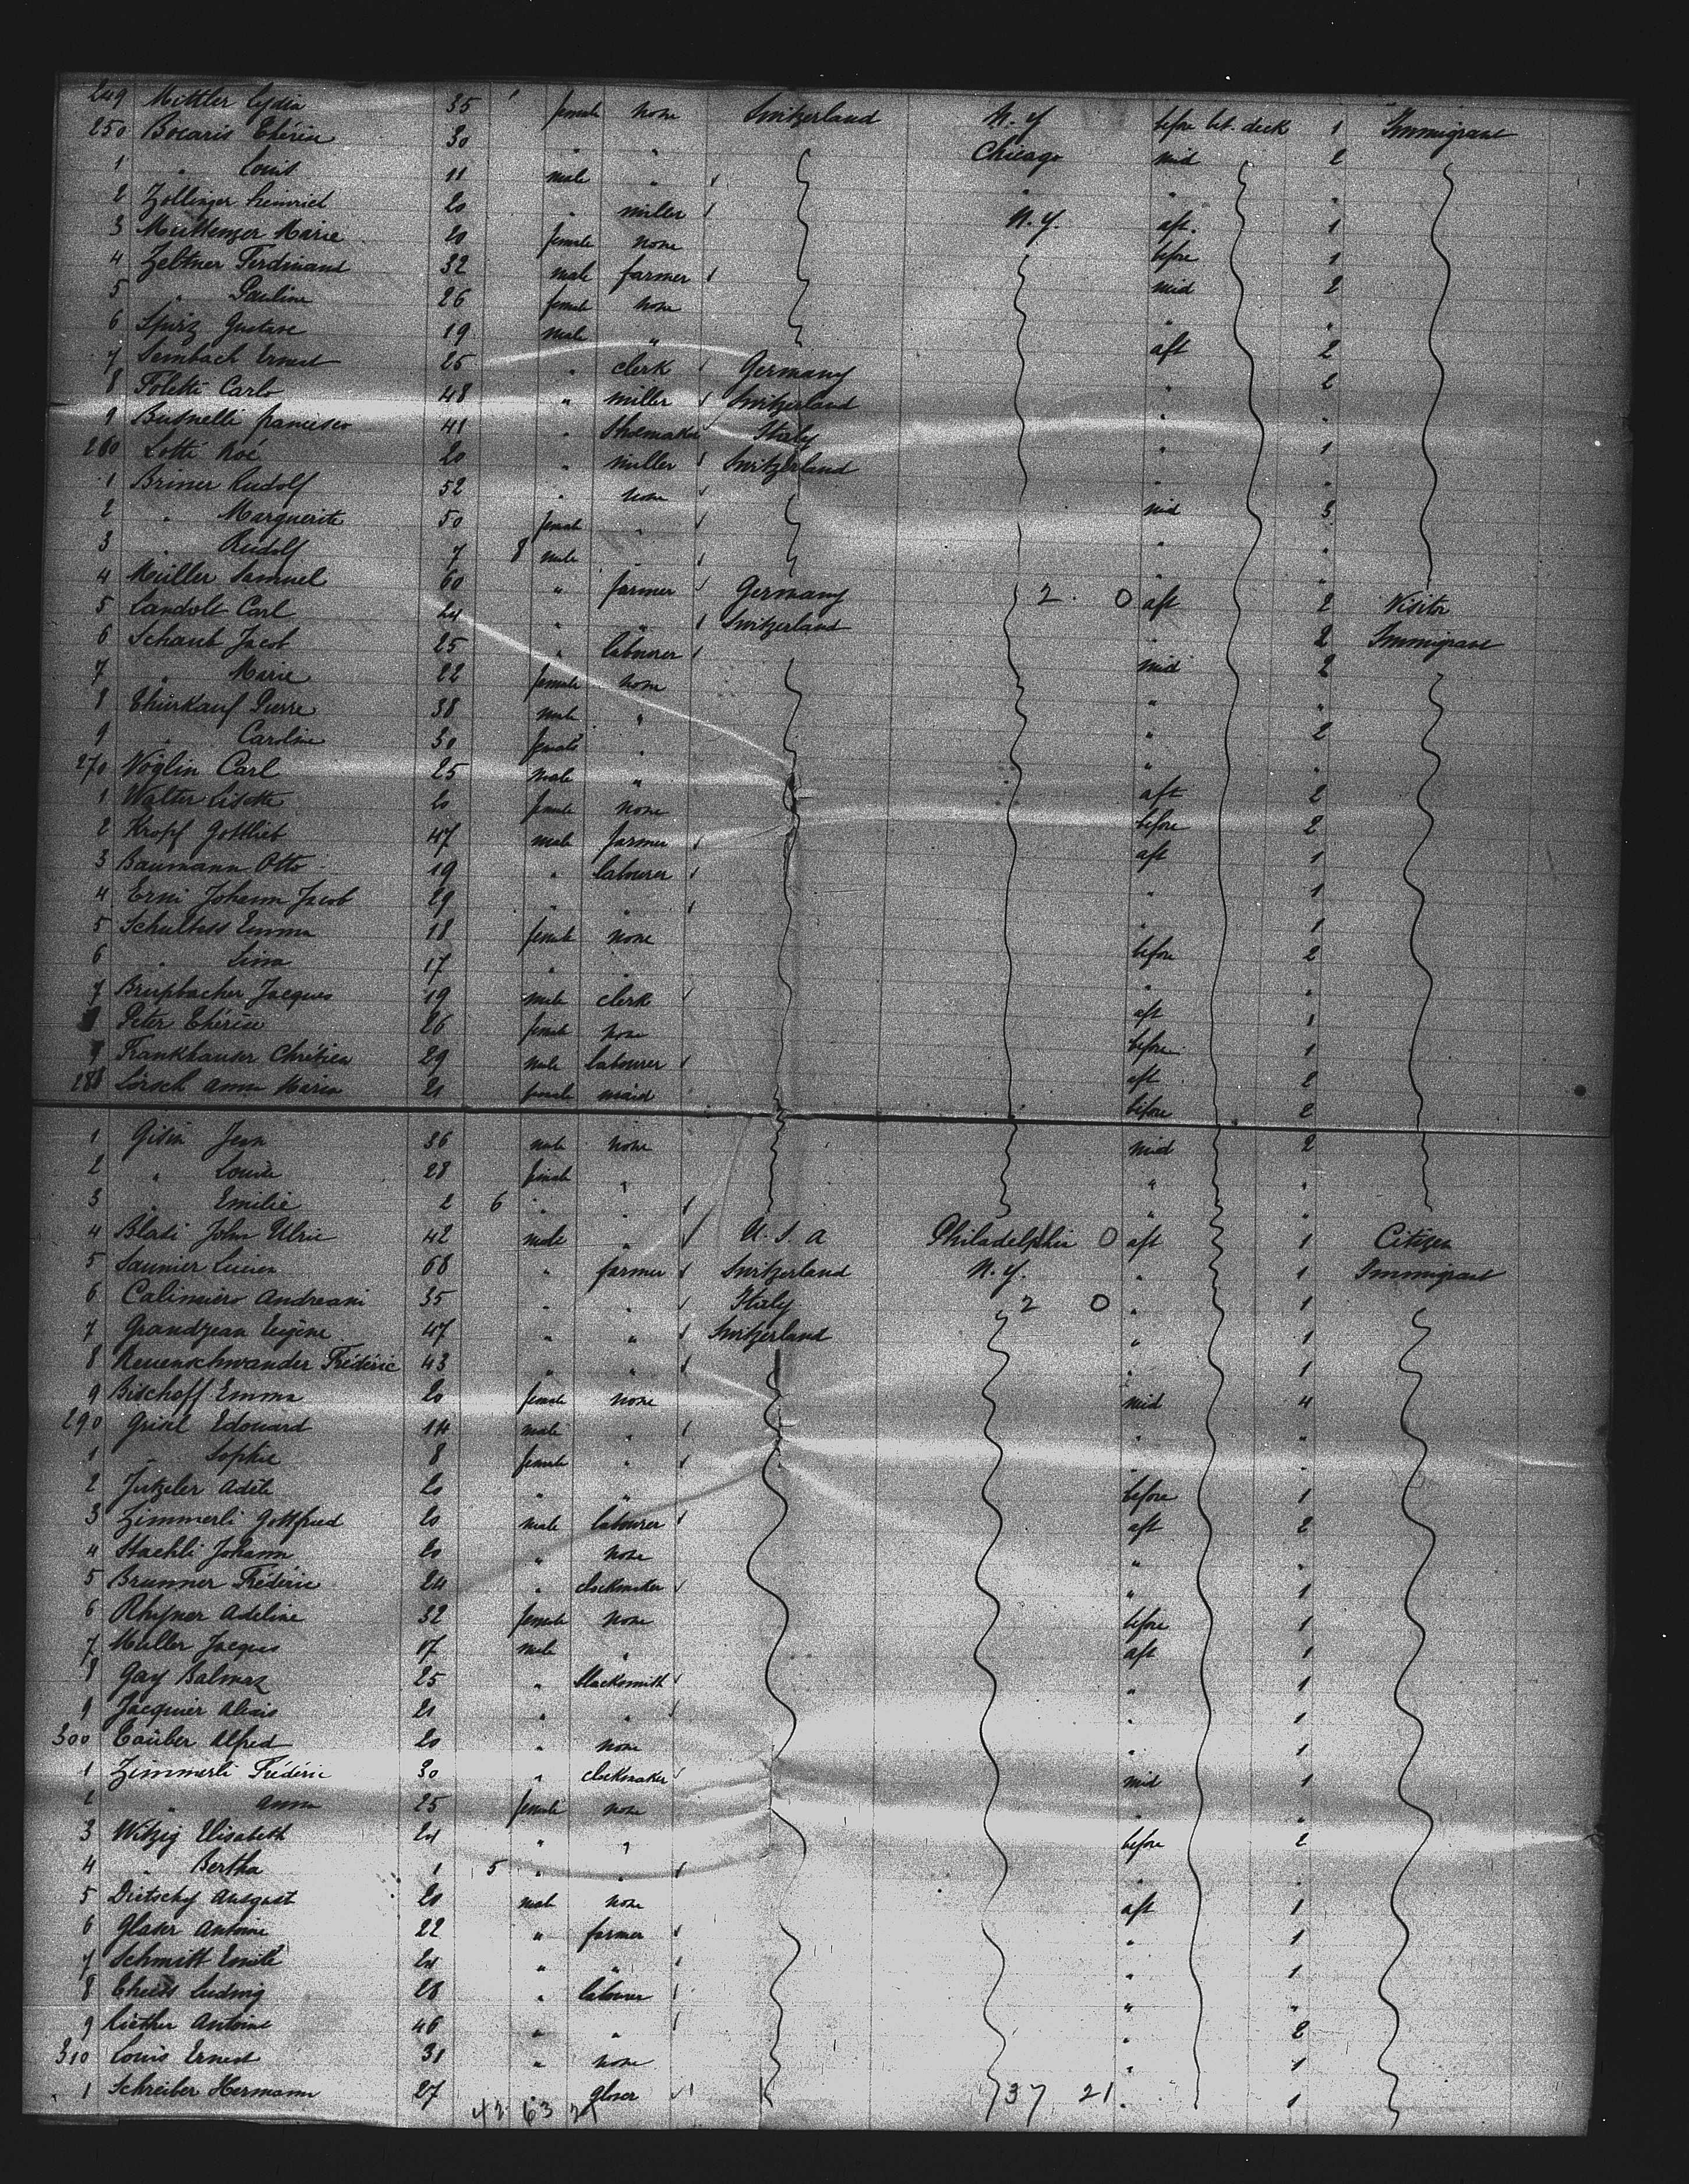 249 Mittler Lydia 35 female none Switzerland N.Y before bt. deck 1 Immigrant
250 Bocaris Thérèse 30 " " Chicago mid 2
1 " Louis 11 male " " " "
2 Zollinger Heinrich 20 " miller N.Y. aft. 1
3 Marie 20 female none before 1
4 Zeltner Ferdinand 32 male farmer mid 2
5 " Pauline 26 female none " "
6 Spirz Gustave 19 male " aft 2
7 Sembach Ernest 25 " clerk Germany " 2
8 Foletti Carlo 48 " miller Switzerland " "
9 Busnelli francisco 41 " Shoemaker Italy " 1
260 Lotti Noé 20 " miller Switzerland " "
1 Briner Rudolf 52 " none mid 3
2 " Marguerite 50 female " " "
3 " Rudolf 7 8 male " "
4 Müller Samuel 60 " farmer Germany 2. 0 aft 2 Visitor
5 Landolt Carl 24 " " Switzerland " 2 Immigrant
6 Schaub Jacob 25 " labourer mid 2
7 " Marie 22 female none " "
8 Thürkauf Pierre 38 male " " 2
9 " Caroline 30 female " " "
270 Vöglin Carl 25 male " aft 2
1 Walter Lisette 20 female none before 2
2 Kropf Gottlieb 47 male farmer aft 1
3 Baumann Otto 19 " labourer " 1
4 Erni Johann Jacob 29 " " " 1
5 Schultess Emma 18 female none before 2
6 " Lina 17 " " " "
7 Brupbacher Jacques 19 male clerk aft 1
Peter Thérèse 26 female none before 1
9 Frankhauser Chrétien 29 male labourer aft 2
280 Lörsch Anna Maria 21 female maid before 2
1 Gisin Jean 36 male none mid 2
2 " Louise 28 female " " "
3 " Emilie 2 6 " " " "
4 Bladi John Ulric 42 male " U.S.A Philadelphia 0 aft 1 Citizen
5 Saunier Lucien 68 " farmer Switzerland N.Y. " 1 Immigrant
6 Calimiero Andreani 35 " " Italy 2 0 " 1
7 Grandjean Eugène 47 " " Switzerland " 1
8 Neuenschwander Frédéric 43 " " " 1
9 Bischoff Emma 20 female none mid 4
290 Grisel Edouard 14 male " " "
1 " Sophie 8 female " " "
2 Jutzeler Adèle 20 " " before 1
3 Zimmerli Gottfried 20 male labourer aft 2
4 Staehli Johann 20 " none " "
5 Brunner Frédéric 24 " clockmaker " 1
6 Rhyner Adeline 32 female none before 1
7 Müller Jacques 17 male " aft 1
8 Gay Balmaz 25 " blacksmith " 1
9 Jacquier Alexis 21 " " " 1
300 Taüber Alfred 20 " none " 1
1 Zimmerli Frédéric 30 " clockmaker mid 1
2 " Anna 25 female none " "
3 Witzig Elisabeth 24 " " before 2
4 " Bertha 1 5 " " " "
5 Dietschy August 20 male none aft 1
6 Glaser Antoine 22 " farmer " 1
7 Schmitt Emile 24 " " " 1
8 Ludwig 28 " labourer " "
9 Antoine 46 " " " 2
310 Louis Ernest 31 " none " 1
1 Schreiber Hermann 27 " 37 21 " 1
42 63 21